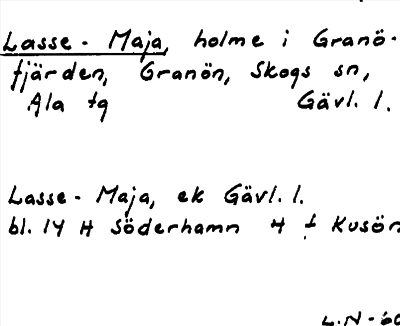 Lasse-Maja, holme i Granö-
fjärden, Granön, Skogs sn,
Ala tg Gävl. l.
Lasse-Maja, ek Gävl. l.
bl. 14 H Söderhamn 4 f Kusön
L.N-60